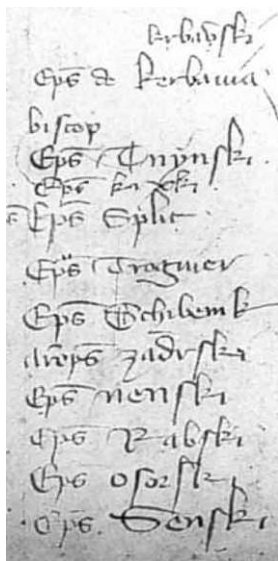 krbavski
Eps de kerbauia
biscop
Eps Tnynski
Eps krčki
Eps Split
Eps Troguier
Eps Schibenik
areps zadrski
Eps nenski
Eps Rabski
Eps osorski
Eps Senski